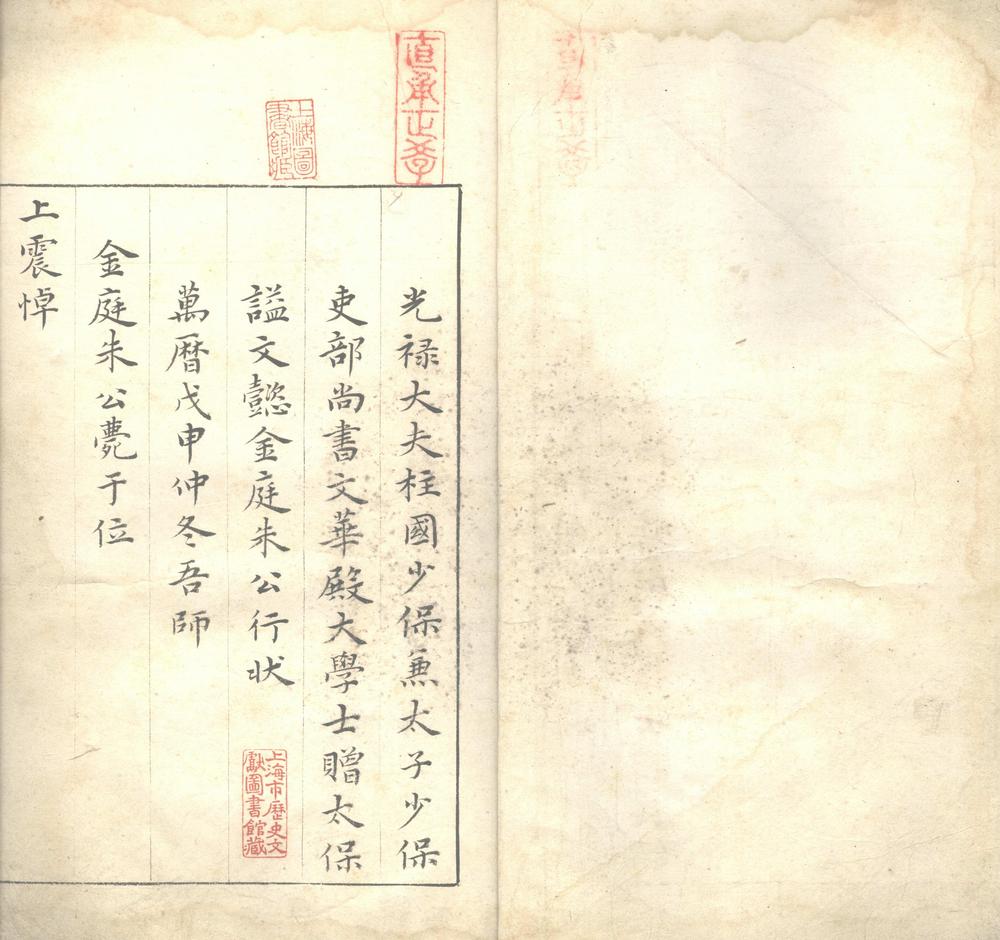 光禄大夫柱國少保兼太子少保
吏部尚書文華殿大學士贈太保
諡文懿金庭朱公行状
萬曆戊申仲冬吾師
金庭朱公薨于位
上震悼
上海市歷史文
獻圖書館藏
上海圖
書館藏